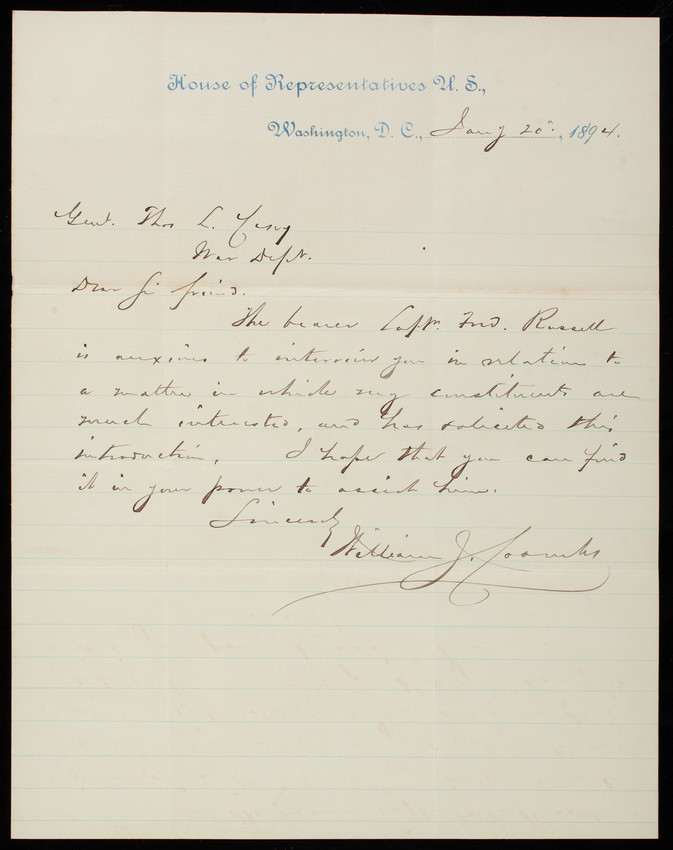 House of Representatives U. S.,
Washington, D. C., Jany 20th, 1894.
Genl. Thos L. Casey
War Dept.
Dear Sir friend.
The bearer Capt. Fred. Russell
is anxious to interview you in relation to
a matter in which my constituents are
much interested, and has solicited this
introduction. I hope that you can find
it in your power to assist him.
Sincerely
William J. Coombs